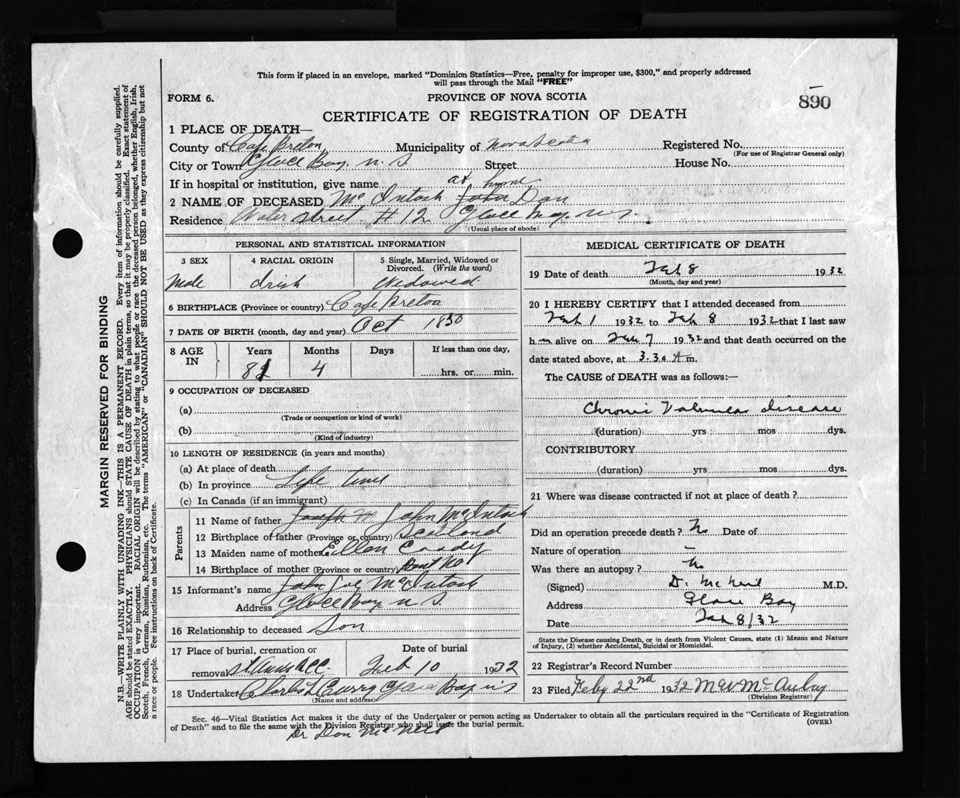 This form if placed in an envelope, marked "Dominion Statistics—Free, penalty for improper use, $300," and properly addressed
will pass through the Mail "FREE"
FORM 6.
PROVINCE OF NOVA SCOTIA
890
CERTIFICATE OF REGISTRATION OF DEATH
1 PLACE OF DEATH—
County of Cape Breton Municipality of Nova Scotia Registered No.
(For use of Registrar General only)
City or Town Glace Bay. N. S Street House No.
If in hospital or institution, give name at home
2 NAME OF DECEASED Mc Intosh John Dan
Residence Water street #12 Glace Bay N S.
(Usual place of abode)
PERSONAL AND STATISTICAL INFORMATION
3 SEX 4 RACIAL ORIGIN 5 Single, Married, Widowed or Divorced. (Write the word)
Male Irish Widowed
6 BIRTHPLACE (Province or country) Cape Breton
7 DATE OF BIRTH (month, day and year) Oct 1850
8 AGE IN Years Months Days If less than one day,
81 4 hrs. or min.
9 OCCUPATION OF DECEASED
(a)
(Trade or occupation or kind of work)
(b)
(Kind of industry)
10 LENGTH OF RESIDENCE (in years and months)
(a) At place of death
(b) In province Life time
(c) In Canada (if an immigrant)
Parents
11 Name of father Joseph H John McIntosh
12 Birthplace of father (Province or country) Scotland
13 Maiden name of mother Ellen Coady
14 Birthplace of mother (Province or country)
15 Informant's name John Joe McIntosh
Address Glace Bay N S.
16 Relationship to deceased Son
17 Place of burial, cremation or removal Date of burial
St Anns R.C.C. Feb 10 1932
18 Undertaker Curry Glace Bay N S
(Name and address)
MEDICAL CERTIFICATE OF DEATH
19 Date of death Feb 8 1932
(Month, day and year)
20 I HEREBY CERTIFY that I attended deceased from
Feb 1 1932 to Feb 8 1932 that I last saw
him alive on Feb 7 1932 and that death occurred on the
date stated above, at 3.30 A m.
The CAUSE of DEATH was as follows:—
Chronic Valvular disease
(duration) yrs mos dys.
CONTRIBUTORY
(duration) yrs mos dys.
21 Where was disease contracted if not at place of death?
Did an operation precede death? No Date of
Nature of operation —
Was there an autopsy? No
(Signed) D. McNeil M.D.
Address Glace Bay
Date Feb 8/32
State the Disease causing Death, or in death from Violent Causes, state (1) Means and Nature
of Injury, (2) whether Accidental, Suicidal or Homicidal.
22 Registrar's Record Number
23 Filed Feby 22nd 1932 McAulay
(Division Registrar)
Sec. 46—Vital Statistics Act makes it the duty of the Undertaker or person acting as Undertaker to obtain all the particulars required in the "Certificate of Registration
of Death" and to file the same with the Division Registrar who shall issue the burial permit.
(OVER)
Dr Dan McNeil
MARGIN RESERVED FOR BINDING
N.B.—WRITE PLAINLY WITH UNFADING INK—THIS IS A PERMANENT RECORD. Every item of information should be carefully supplied.
AGE should be stated EXACTLY. PHYSICIANS should STATE CAUSE OF DEATH in plain terms, so that it may be properly classified. Exact statement of
OCCUPATION is very important. RACIAL ORIGIN will be described by stating to what people or race the deceased person belonged, whether English, Irish,
Scotch, French, German, Russian, Ruthenian, etc. The terms "AMERICAN" or "CANADIAN" SHOULD NOT BE USED as they express citizenship but not
a race or people. See instructions on back of Certificate.